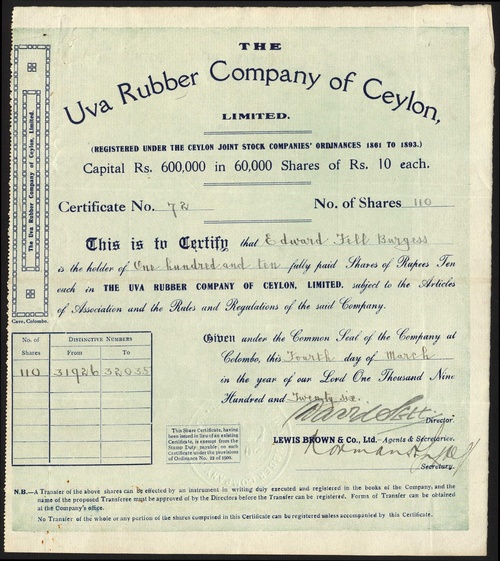 THE
Uva Rubber Company of Ceylon,
LIMITED.
(REGISTERED UNDER THE CEYLON JOINT STOCK COMPANIES' ORDINANCES 1861 TO 1893.)
Capital Rs. 600,000 in 60,000 Shares of Rs. 10 each.
Certificate No. 72 No. of Shares 110
This is to Certify that Edward Fell Burgess
is the holder of One hundred and ten fully paid Shares of Rupees Ten
each in THE UVA RUBBER COMPANY OF CEYLON, LIMITED, subject to the Articles
of Association and the Rules and Regulations of the said Company.
The Uva Rubber Company of Ceylon, Limited.
Cave, Colombo.
Given under the Common Seal of the Company at
Colombo, this Fourth day of March
in the year of our Lord One Thousand Nine
Hundred and Twenty six.
No. of Shares DISTINCTIVE NUMBERS
From To
110 31926 32035
Director.
This Share Certificate, having
been issued in lieu of an existing
Certificate, is exempt from the
Stamp Duty payable on such
Certificate under the provisions
of Ordinance No. 22 of 1909.
LEWIS BROWN & Co., Ltd.—Agents & Secretaries.
Secretary.
N.B.—A Transfer of the above shares can be effected by an instrument in writing duly executed and registered in the books of the Company, and the
name of the proposed Transferee must be approved of by the Directors before the Transfer can be registered. Forms of Transfer can be obtained
at the Company's office.
No Transfer of the whole or any portion of the shares comprised in this Certificate can be registered unless accompanied by this Certificate.